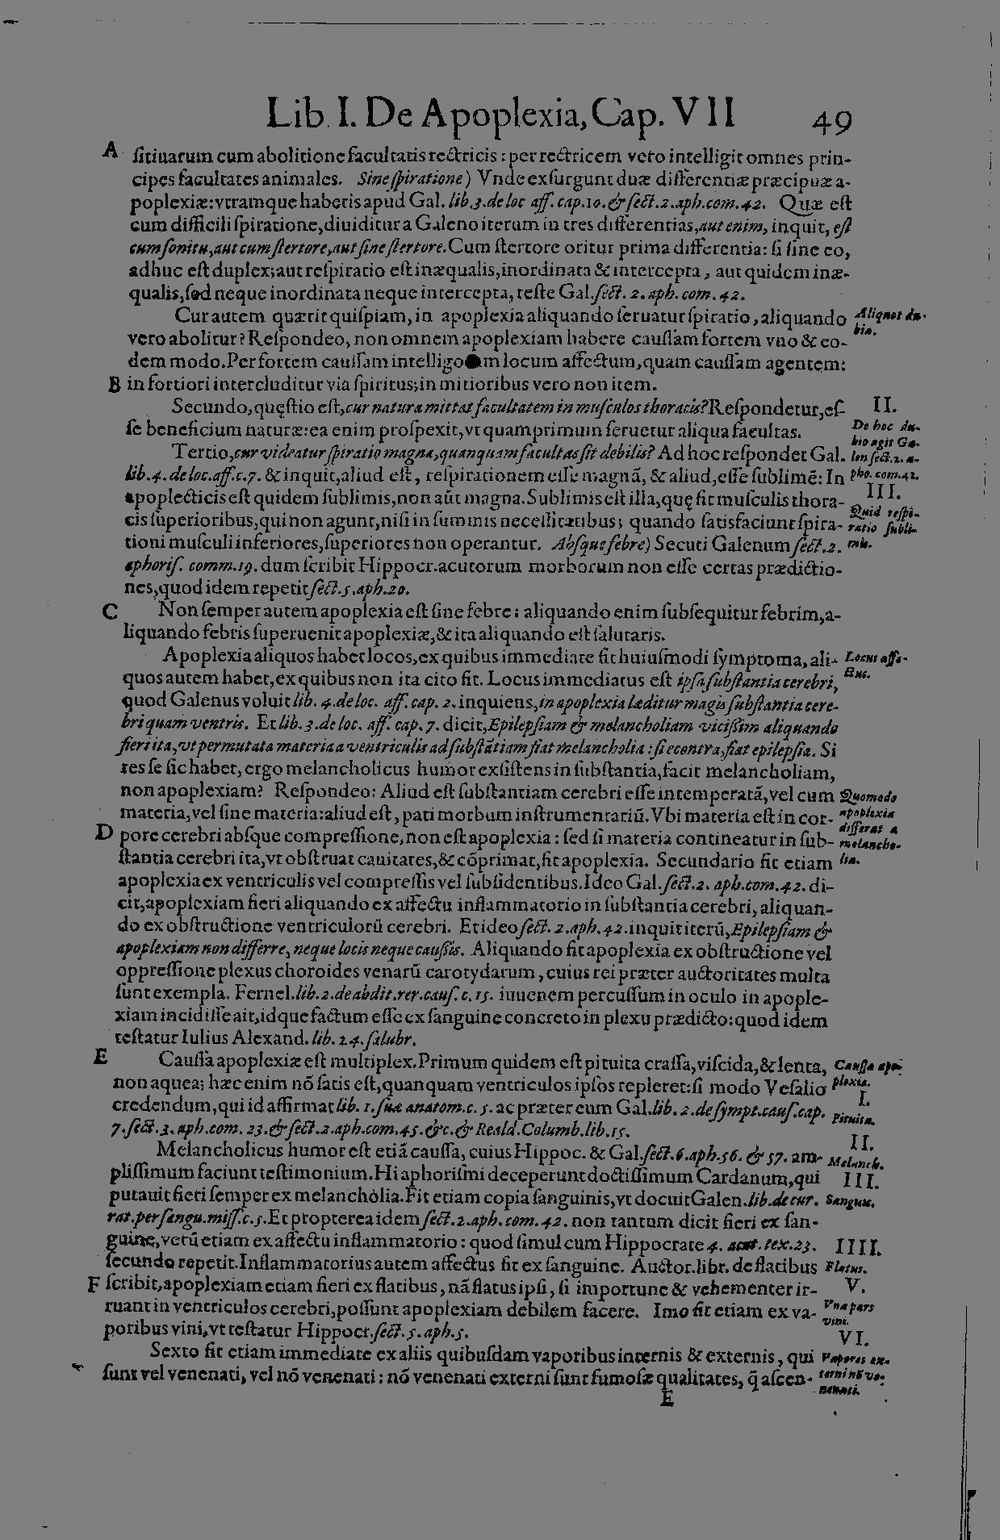 Lib. I. De Apoplexia, Cap. VII 49
A ſitiuarum cum abolitione facultatis rectricis : per rectricem vero intelligit omnes prin-
cipes facultates animales. Sine ſpiratione) Vnde exſurgunt duæ differentiæ præcipuæ a-
poplexiæ: vtramque habetis apud Gal. lib. 3. de loc aff. cap. 10. & ſect. 2. aph. com. 42. Quæ eſt
cum difficili ſpiratione, diuiditur a Galeno iterum in tres differentias, aut enim, inquit, eſt
cum ſonitu, aut cum ſtertore, aut ſine ſtertore. Cum ſtertore oritur prima differentia: ſi ſine eo,
adhuc eſt duplex; aut reſpiratio eſt inæqualis, inordinata & intercepta, aut quidem inæ-
qualis, ſed neque inordinata neque intercepta, teſte Gal. ſect. 2. aph. com. 42.
Cur autem quærit quiſpiam, in apoplexia aliquando ſeruatur ſpiratio, aliquando
Aliquot du-
bia.
vero abolitur? Reſpondeo, non omnem apoplexiam habere cauſſam fortem vno & eo-
dem modo. Per fortem cauſſam intelligo m locum affectum, quam cauſſam agentem:
B in fortiori intercluditur via ſpiritus; in mitioribus vero non item.
Secundo, quęſtio eſt, cur natura mittat facultatem in muſculos thoracis? Reſpondetur, eſ-
II.
De hoc du-
bio agit Ga-
len ſect. 2. a-
pho. com. 42.
ſe beneficium naturæ: ea enim proſpexit, vt quamprimum ſeruetur aliqua facultas.
Tertio, cur videatur ſpiratio magna, quanquam facultas ſit debilis? Ad hoc reſpondet Gal.
lib. 4. de loc. aff. c. 7. & inquit, aliud eſt, reſpirationem eſſe magnã, & aliud, eſſe ſublimẽ: In
III.
Quid reſpi-
ratio ſubli-
mis.
apoplecticis eſt quidem ſublimis, non aũt magna. Sublimis eſt illa, quę fit muſculis thora-
cis ſuperioribus, qui non agunt, niſi in ſummis neceſſitatibus; quando ſatisfaciunt ſpira-
tioni muſculi inferiores, ſuperiores non operantur. Abſque febre) Secuti Galenum ſect. 2.
aphoriſ. comm. 19. dum ſcribit Hippocr. acutorum morborum non eſſe certas prædictio-
nes, quod idem repetit ſect. 5. aph. 20.
C Non ſemper autem apoplexia eſt ſine febre: aliquando enim ſubſequitur febrim, a-
liquando febris ſuperuenit apoplexiæ, & ita aliquando eſt ſalutaris.
Apoplexia aliquos habet locos, ex quibus immediate fit huiuſmodi ſymptoma, ali-
Locus affe-
ctus.
quos autem habet, ex quibus non ita cito fit. Locus immediatus eſt ipſa ſubſtantia cerebri,
quod Galenus voluit lib. 4. de loc. aff. cap. 2. inquiens, in apoplexia læditur magis ſubſtantia cere-
bri quam ventris. Et lib. 3. de loc. aff. cap. 7. dicit, Epilepſiam & melancholiam viciſſim aliquando
fieri ita, vt permutata materia a ventriculis ad ſubſtãtiam fiat melancholia: ſi econtra, fiat epilepſia. Si
res ſe ſic habet, ergo melancholicus humor exſiſtens in ſubſtantia, facit melancholiam,
non apoplexiam? Reſpondeo: Aliud eſt ſubſtantiam cerebri eſſe intemperatã, vel cum
Quomodo
apoplexia
differat a
melancho-
lia.
materia, vel ſine materia: aliud eſt, pati morbum inſtrumentariũ. Vbi materia eſt in cor-
D pore cerebri abſque compreſſione, non eſt apoplexia: ſed ſi materia contineatur in ſub-
ſtantia cerebri ita, vt obſtruat cauitates, & cõprimat, fit apoplexia. Secundario fit etiam
apoplexia ex ventriculis vel compreſſis vel ſubſidentibus. Ideo Gal. ſect. 2. aph. com. 42. di-
cit, apoplexiam fieri aliquando ex affectu inflammatorio in ſubſtantia cerebri, aliquan-
do ex obſtructione ventriculorũ cerebri. Et ideo ſect. 2. aph. 42. inquit iterũ, Epilepſiam &
apoplexiam non differre, neque locis neque cauſſis. Aliquando fit apoplexia ex obſtructione vel
oppreſſione plexus choroides venarũ carotydarum, cuius rei præter auctoritates multa
ſunt exempla. Fernel. lib. 2. de abdit. rer. cauſ. c. 15. iuuenem percuſſum in oculo in apople-
xiam incidiſſe ait, idque factum eſſe ex ſanguine concreto in plexu prædicto: quod idem
teſtatur Iulius Alexand. lib. 24. ſalubr.
E Cauſſa apoplexiæ eſt multiplex. Primum quidem eſt pituita craſſa, viſcida, & lenta,
Cauſſa apo-
plexiæ.
I.
Pituita.
non aquea; hæc enim nõ ſatis eſt, quanquam ventriculos ipſos repleret: ſi modo Veſalio
credendum, qui id affirmat lib. 1. ſuæ anatom. c. 5. ac præter eum Gal. lib. 2. de ſympt. cauſ. cap.
7. ſect. 3. aph. com. 23. & ſect. 2. aph. com. 45. &c. & Reald. Columb. lib. 15.
Melancholicus humor eſt etiã cauſſa, cuius Hippoc. & Gal. ſect. 6. aph. 56. & 57. am-
II.
Melanch.
pliſſimum faciunt teſtimonium. Hi aphoriſmi deceperunt doctiſſimum Cardanum, qui
III.
Sanguis.
putauit fieri ſemper ex melancholia. Fit etiam copia ſanguinis, vt docuit Galen. lib. de cur.
rat. per ſangu. miſſ. c. 5. Et propterea idem ſect. 2. aph. com. 42. non tantum dicit fieri ex ſan-
guine, verũ etiam ex affectu inflammatorio: quod ſimul cum Hippocrate 4. acut. tex. 23.
IIII.
Flatus.
ſecundo repetit. Inflammatorius autem affectus fit ex ſanguine. Auctor. libr. de flatibus
F ſcribit, apoplexiam etiam fieri ex flatibus, nã flatus ipſi, ſi importune & vehementer ir-
V.
Vna pars
vini.
ruant in ventriculos cerebri, poſſunt apoplexiam debilem facere. Imo fit etiam ex va-
poribus vini, vt teſtatur Hippocr. ſect. 5. aph. 5.
VI.
Sexto fit etiam immediate ex aliis quibuſdam vaporibus internis & externis, qui
Vapores ex-
terni ſunt ve-
nenati.
ſunt vel venenati, vel nõ venenati: nõ venenati externi ſunt fumoſæ qualitates, q̃ aſcen-
E